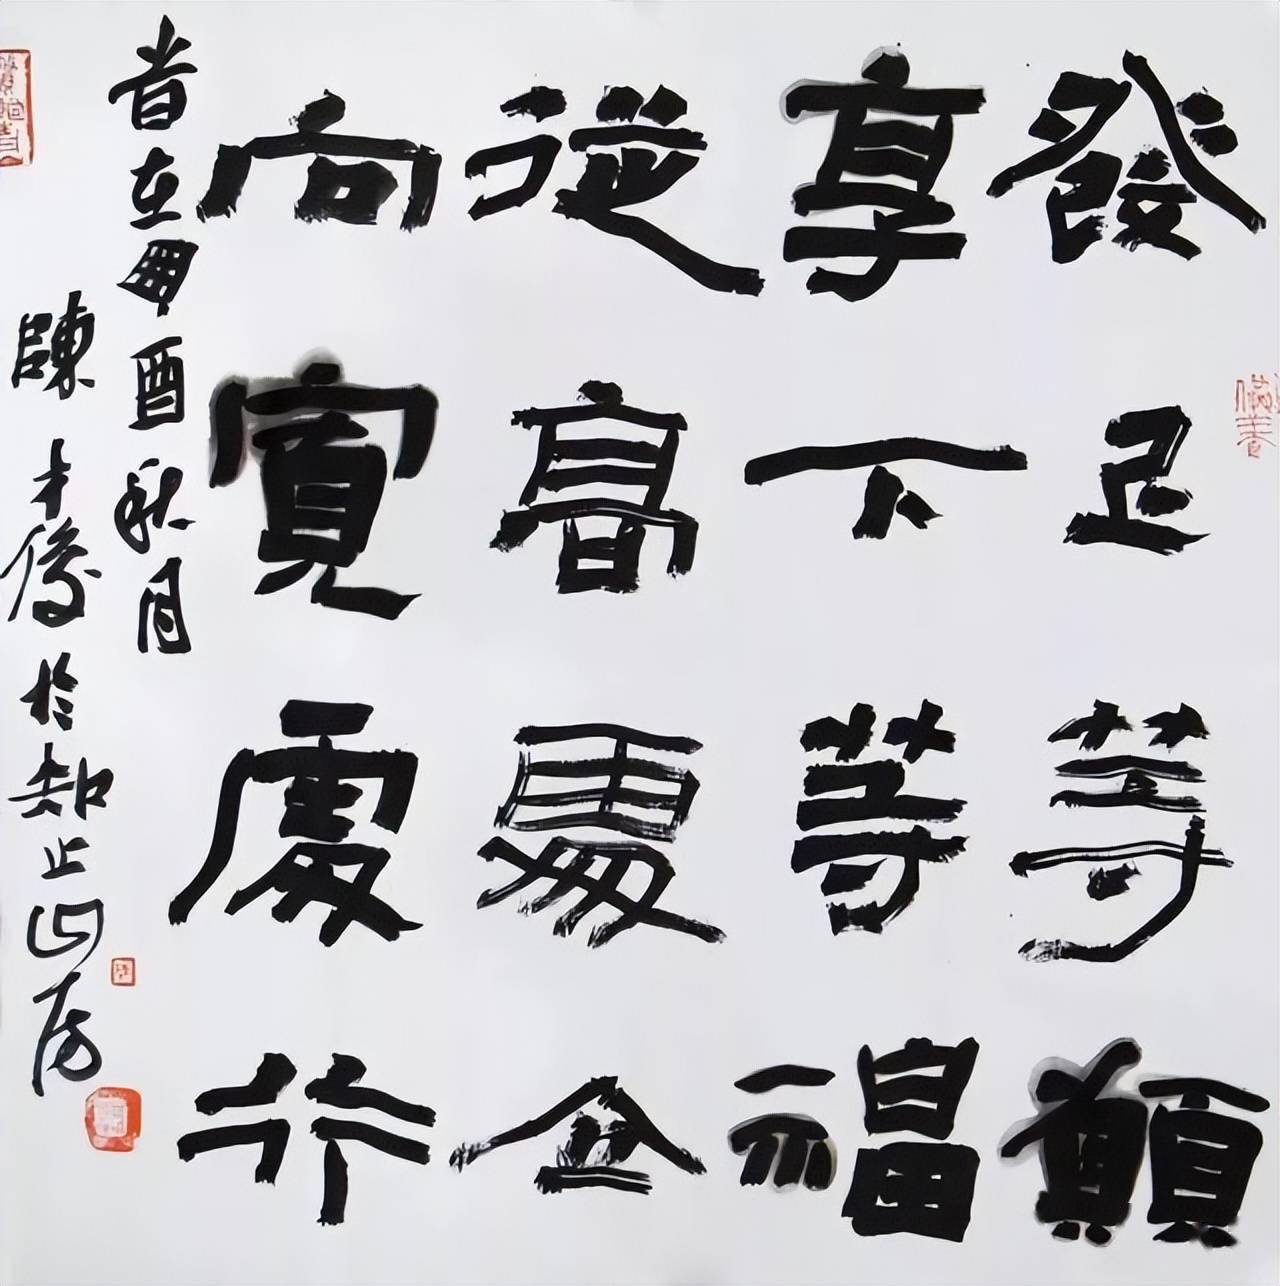 發上等願
享下等福
從高處立
向寬處行
旹在酉秋月
陳才俊於知止山房